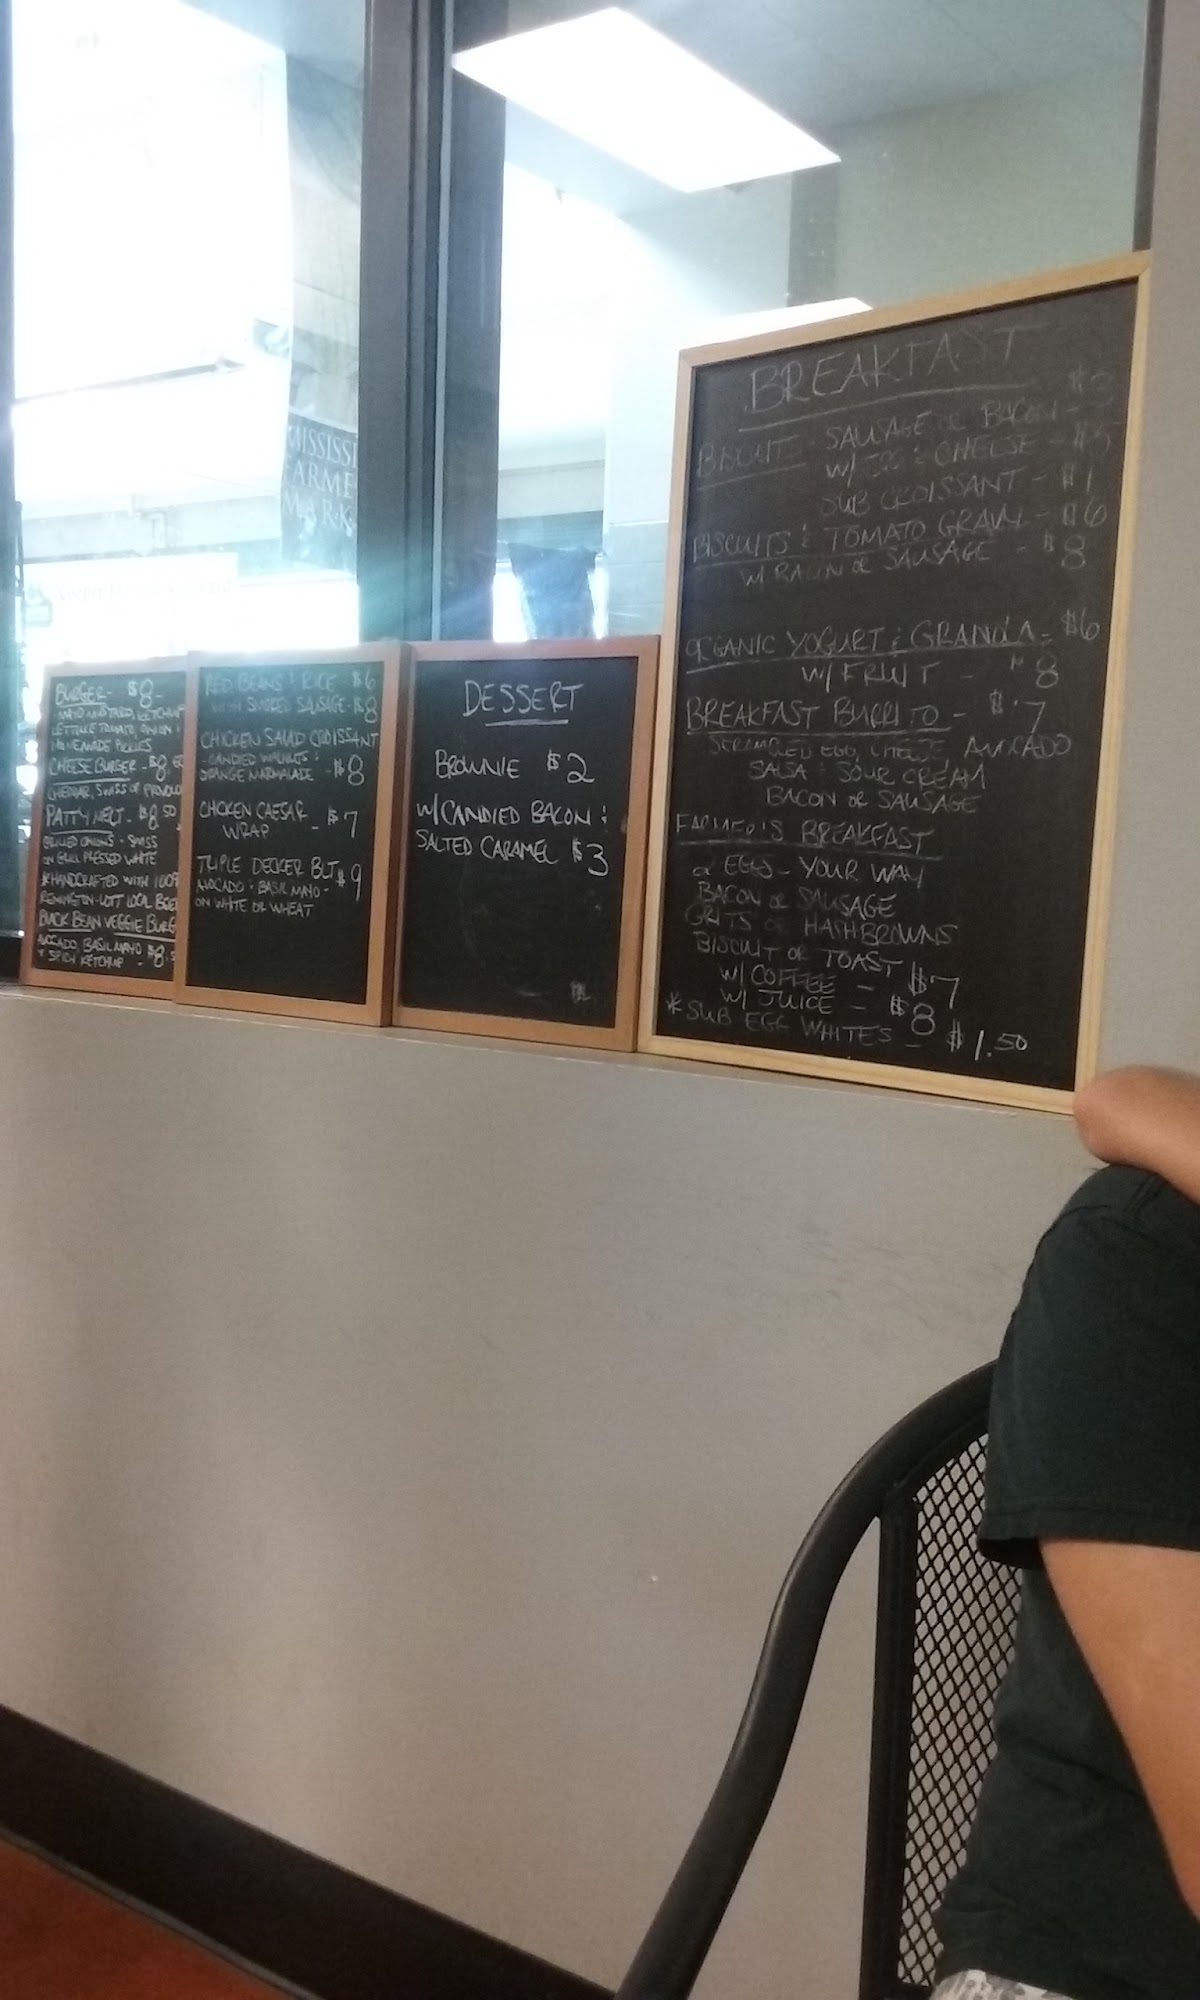 MISSISSI
FARME
MARK
BURGER - $8 -
MAYO MUSTARD, KETCHUP
LETTUCE TOMATO, ONION &
HOMEMADE PICKLES
CHEESE BURGER - $8.50
CHEDDAR, SWISS OR PROVOLO
PATTY MELT - $8.50
GRILLED ONIONS - SWISS
ON GRILL PRESSED WHITE
*HANDCRAFTED WITH 100%
REMINGTON-LOTT LOCAL BEEF
BLACK BEAN VEGGIE BURG
AVOCADO, BASIL MAYO $8.5
+ SPICY KETCHUP -
RED BEANS & RICE $6
WITH SMOKED SAUSAGE - $8
CHICKEN SALAD CROISSANT
- CANDIED WALNUTS &
ORANGE MARMALADE - $8
CHICKEN CAESAR
WRAP - $7
TRIPLE DECKER BLT $9
AVOCADO & BASIL MAYO -
ON WHITE OR WHEAT
DESSERT
BROWNIE $2
W/CANDIED BACON &
SALTED CARAMEL $3
BREAKFAST
BISCUITS - SAUSAGE OR BACON - $3
W/ EGG & CHEESE - $5
SUB CROISSANT - $1
BISCUITS & TOMATO GRAVY - $6
W/ BACON OR SAUSAGE - $8
ORGANIC YOGURT & GRANOLA - $6
W/ FRUIT - 8
BREAKFAST BURRITO - $7
SCRAMBLED EGG, CHEESE, AVOCADO
SALSA & SOUR CREAM
BACON OR SAUSAGE
FARMER'S BREAKFAST
EGGS - YOUR WAY
BACON OR SAUSAGE
GRITS OR HASHBROWNS
BISCUIT OR TOAST
W/ COFFEE - $7
W/ JUICE - $8
*SUB EGG WHITES - $1.50